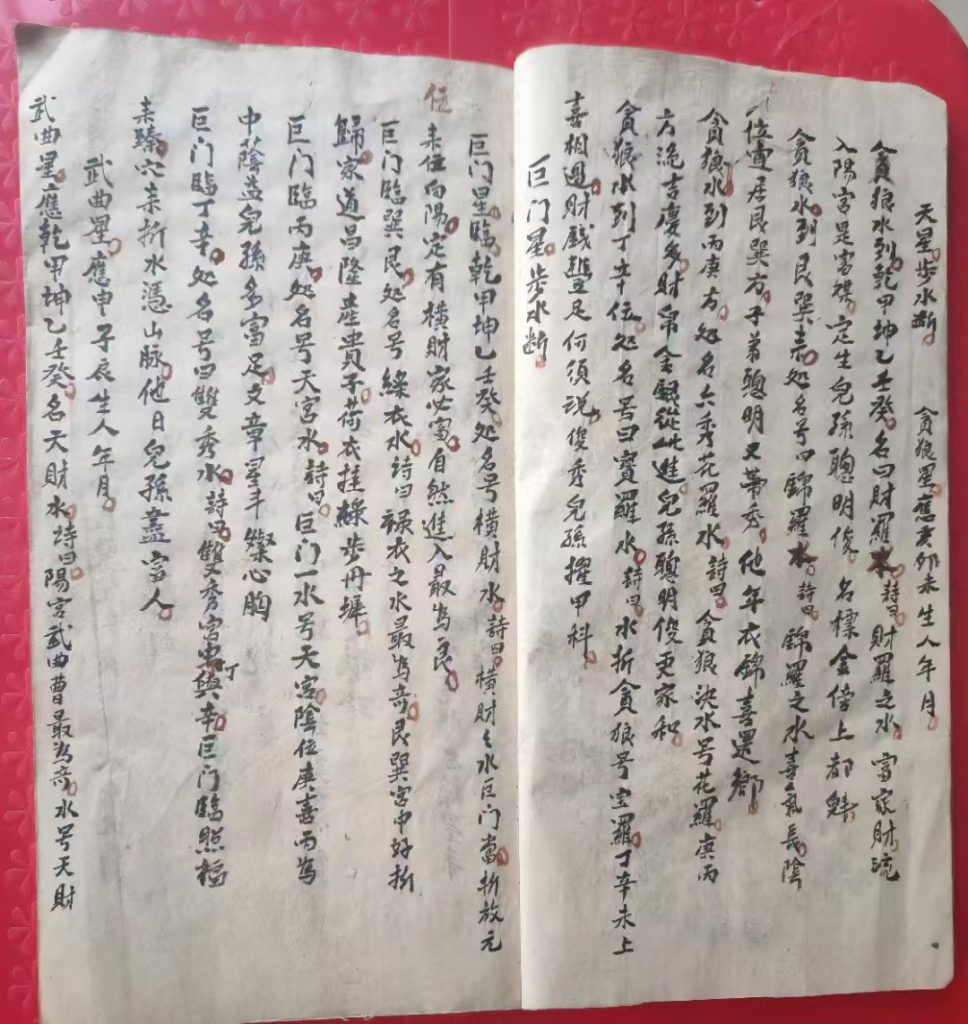 天星步水断 貪狼星應亥卯未生人年月
貪狼水到乾甲坤乙壬癸名曰財羅水詩曰財羅之水富家財流
入陽宮是富媒定生兒孫聰明俊名標金傍上都魁
貪狼水到艮巽未处名号曰錦羅水詩曰錦羅之水喜氣長陰
位壶居艮巽方子弟聰明又帶秀他年衣錦喜還鄉
貪狼水到丙庚方处名六秀花羅水詩曰貪狼決水号花羅庚丙
方流吉慶多財帛金銀從此進兒孫聰明俊更家和
貪狼水到丁辛位处名号曰寶羅水詩曰水折貪狼号宝羅丁辛未上
喜相過財戯豐足何須説俊秀兒孫擢甲科
巨门星步水断
巨门星臨乾甲坤乙壬癸处名号橫財水詩曰橫財之水巨门當折放元
耒位向陽定有橫財家必富自然進入最为良
伍
巨门臨巽艮处名号綠衣水詩曰祿衣之水最为奇艮巽宮中好折
歸家道昌隆産貴子荷衣挂綠步丹墀
巨门臨丙庚处名号天宮水詩曰巨门一水号天宮陰位庚喜丙为
中蔭益兒孫多富足文章星斗燦心胸
巨门臨丁辛处名号曰雙秀水詩曰雙秀宮中與辛巨门臨照福
丁
耒臻穴耒折水憑山脉他日兒孫盡富人
武曲星應申子辰生人年月
武曲星應乾甲坤乙壬癸名天財水詩曰陽宮武曲曹最为奇水号天財